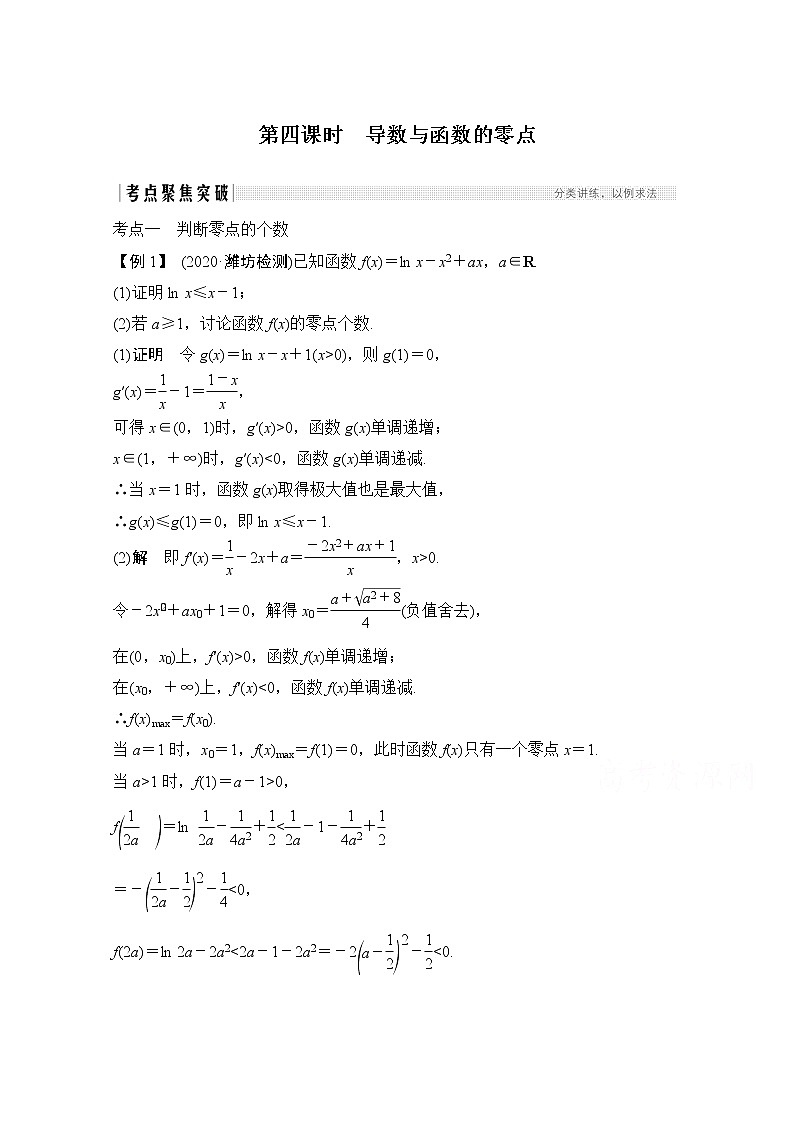 第四课时　导数与函数的零点
考点聚焦突破 分类讲练，以例求法
考点一　判断零点的个数
【例1】 (2020·潍坊检测)已知函数f(x)＝ln x－x²＋ax，a∈R.
(1)证明ln x≤x－1；
(2)若a≥1，讨论函数f(x)的零点个数.
(1)证明　令g(x)＝ln x－x＋1(x>0)，则g(1)＝0，
g′(x)＝1/x－1＝(1－x)/x，
可得x∈(0，1)时，g′(x)>0，函数g(x)单调递增；
x∈(1，＋∞)时，g′(x)<0，函数g(x)单调递减.
∴当x＝1时，函数g(x)取得极大值也是最大值，
∴g(x)≤g(1)＝0，即ln x≤x－1.
(2)解　即f′(x)＝1/x－2x＋a＝(－2x²＋ax＋1)/x，x>0.
令－2x＋ax₀＋1＝0，解得x₀＝(a＋√(a²＋8))/4(负值舍去)，
在(0，x₀)上，f′(x)>0，函数f(x)单调递增；
在(x₀，＋∞)上，f′(x)<0，函数f(x)单调递减.
∴f(x)max＝f(x₀).
当a＝1时，x₀＝1，f(x)max＝f(1)＝0，此时函数f(x)只有一个零点x＝1.
当a>1时，f(1)＝a－1>0，
f(1/2a)＝ln 1/2a－1/4a²＋1/2<1/2a－1－1/4a²＋1/2
＝－(1/2a－1/2)²－1/4<0，
f(2a)＝ln 2a－2a²<2a－1－2a²＝－2(a－1/2)²－1/2<0.